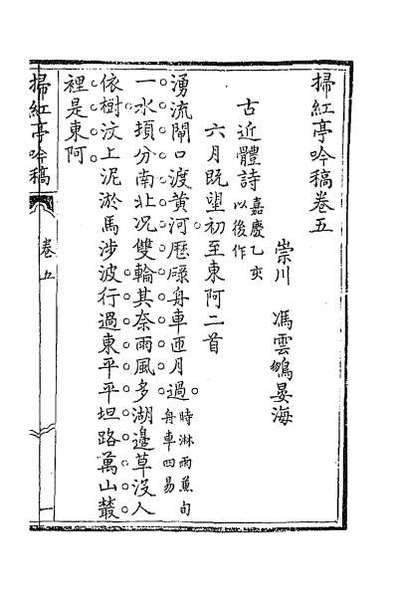 掃紅亭吟稿卷五
崇川 馮雲鵷晏海
古近體詩嘉慶乙亥以後作
六月既望初至東阿二首
湧流閘口渡黄河歷碌舟車匝月過時淋雨兼旬舟車四易
一水頃分南北况雙輪其奈雨風多湖邊草沒人
依樹汶上泥淤馬涉波行過東平平坦路萬山叢
裡是東阿
掃紅亭吟稿
卷五
一